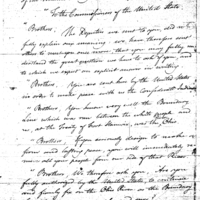 To the Commissioners of the United States
"Brothers. The Deputies we sent to you, did not
fully explain our meaning. We have therefore sent
others to meet you once more, that you may fully
understand the great question we have to ask of you, and
to which we expect an explicit answer in writing.
"Brothers. You are sent here by the United States
in order to make peace with us the Confederate Indians
"Brothers. You know very well the Boundary
Line which was run between the white people and
us, at the Treaty of Fort Stanwix, was the Ohio
"Brothers. If you seriously design to make a
firm and lasting peace, you will immediately
remove all your people from our side of that River
"Brothers. We therefore ask you. Are you
fully authorized by the United States to continue
and firmly fix on the Ohio River as the Boundary